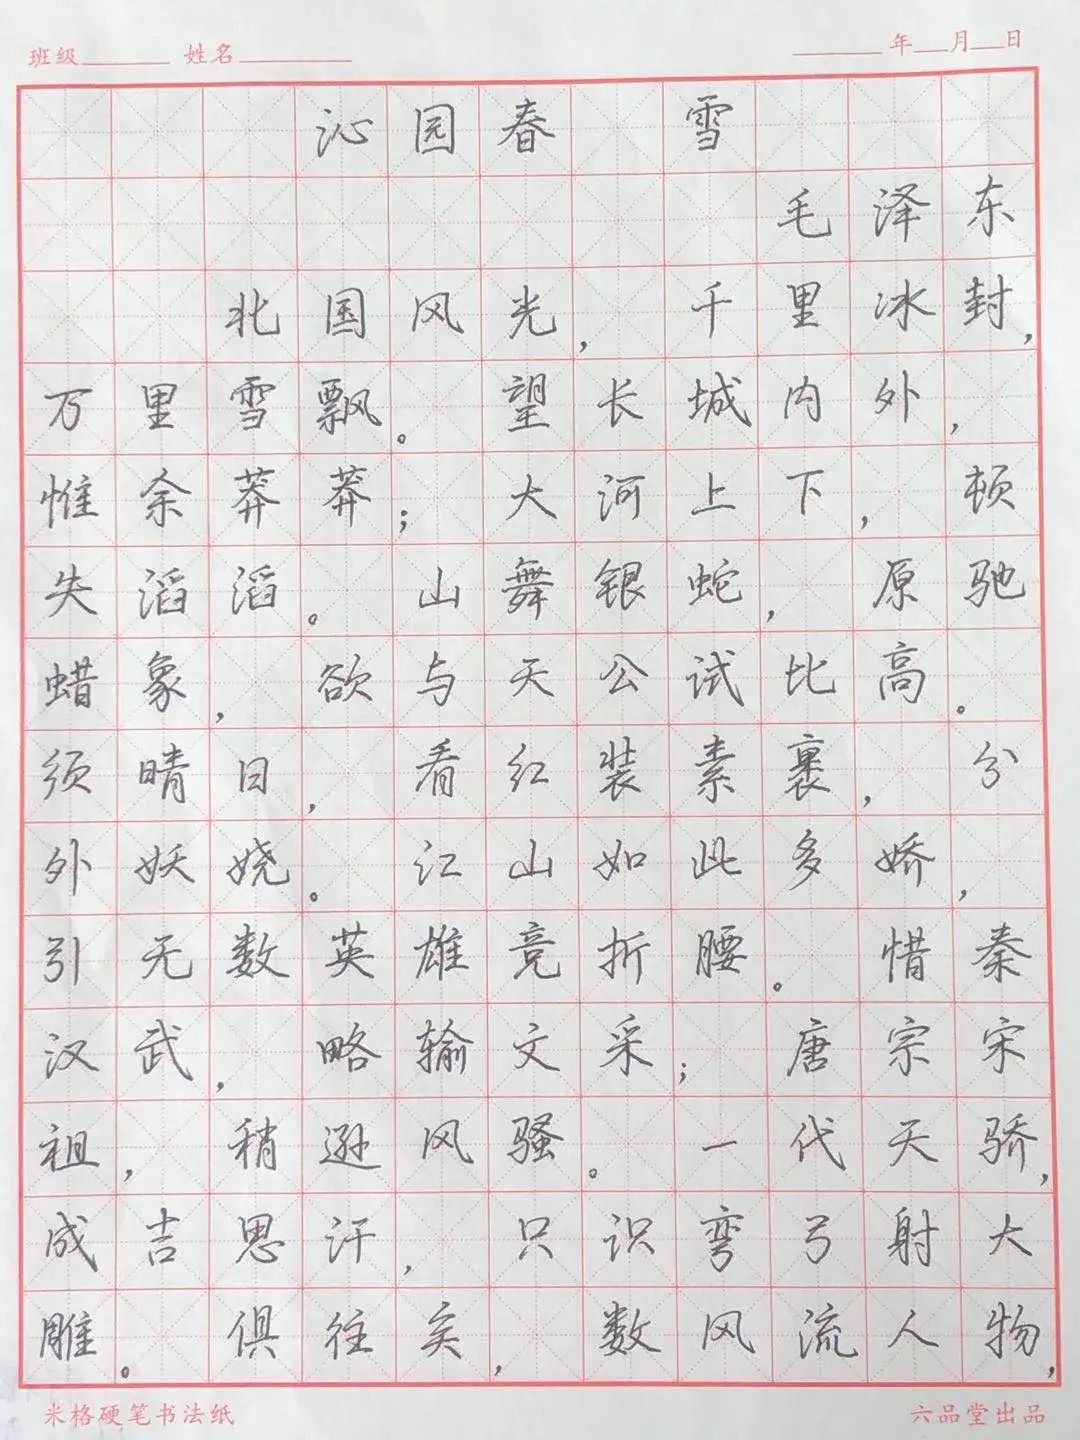 班级 姓名 年 月 日
沁园春 雪
毛泽东
北国风光，千里冰封，
万里雪飘。望长城内外，
惟余莽莽；大河上下，顿
失滔滔。山舞银蛇，原驰
蜡象，欲与天公试比高。
须晴日，看红装素裹，分
外妖娆。江山如此多娇，
引无数英雄竞折腰。惜秦
汉武，略输文采；唐宗宋
祖，稍逊风骚。一代天骄，
成吉思汗，只识弯弓射大
雕。俱往矣，数风流人物，
米格硬笔书法纸 六品堂出品